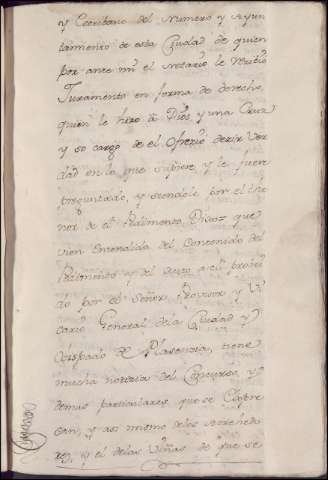 y Escribano del Numero y Ayun
tamiento de esta Ciudad de quien
por ante mi el Notario le Recibio
Juramento en forma de derecho,
quien le hizo â Dios, y una Cruz
y so cargo de el Ofrezio dezir Ver
dad en lo que supiere y le fuere
preguntado, y siendole por el the
nor de el Pedimento, Dixo: que
bien Entendido del Contenido del
Pedimento y del Auto a el probei
do por el Señor Provisor y Vi
cario General de la Ciudad y
Obispado de Plasencia, tiene
mucha noticia del
demas particulares, que se Expre
san, y asi mismo de los
y el de las Viñas de que se